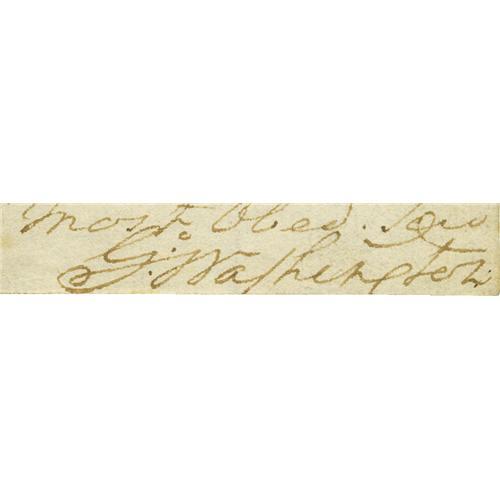 most Obed. Ser
G:Washington